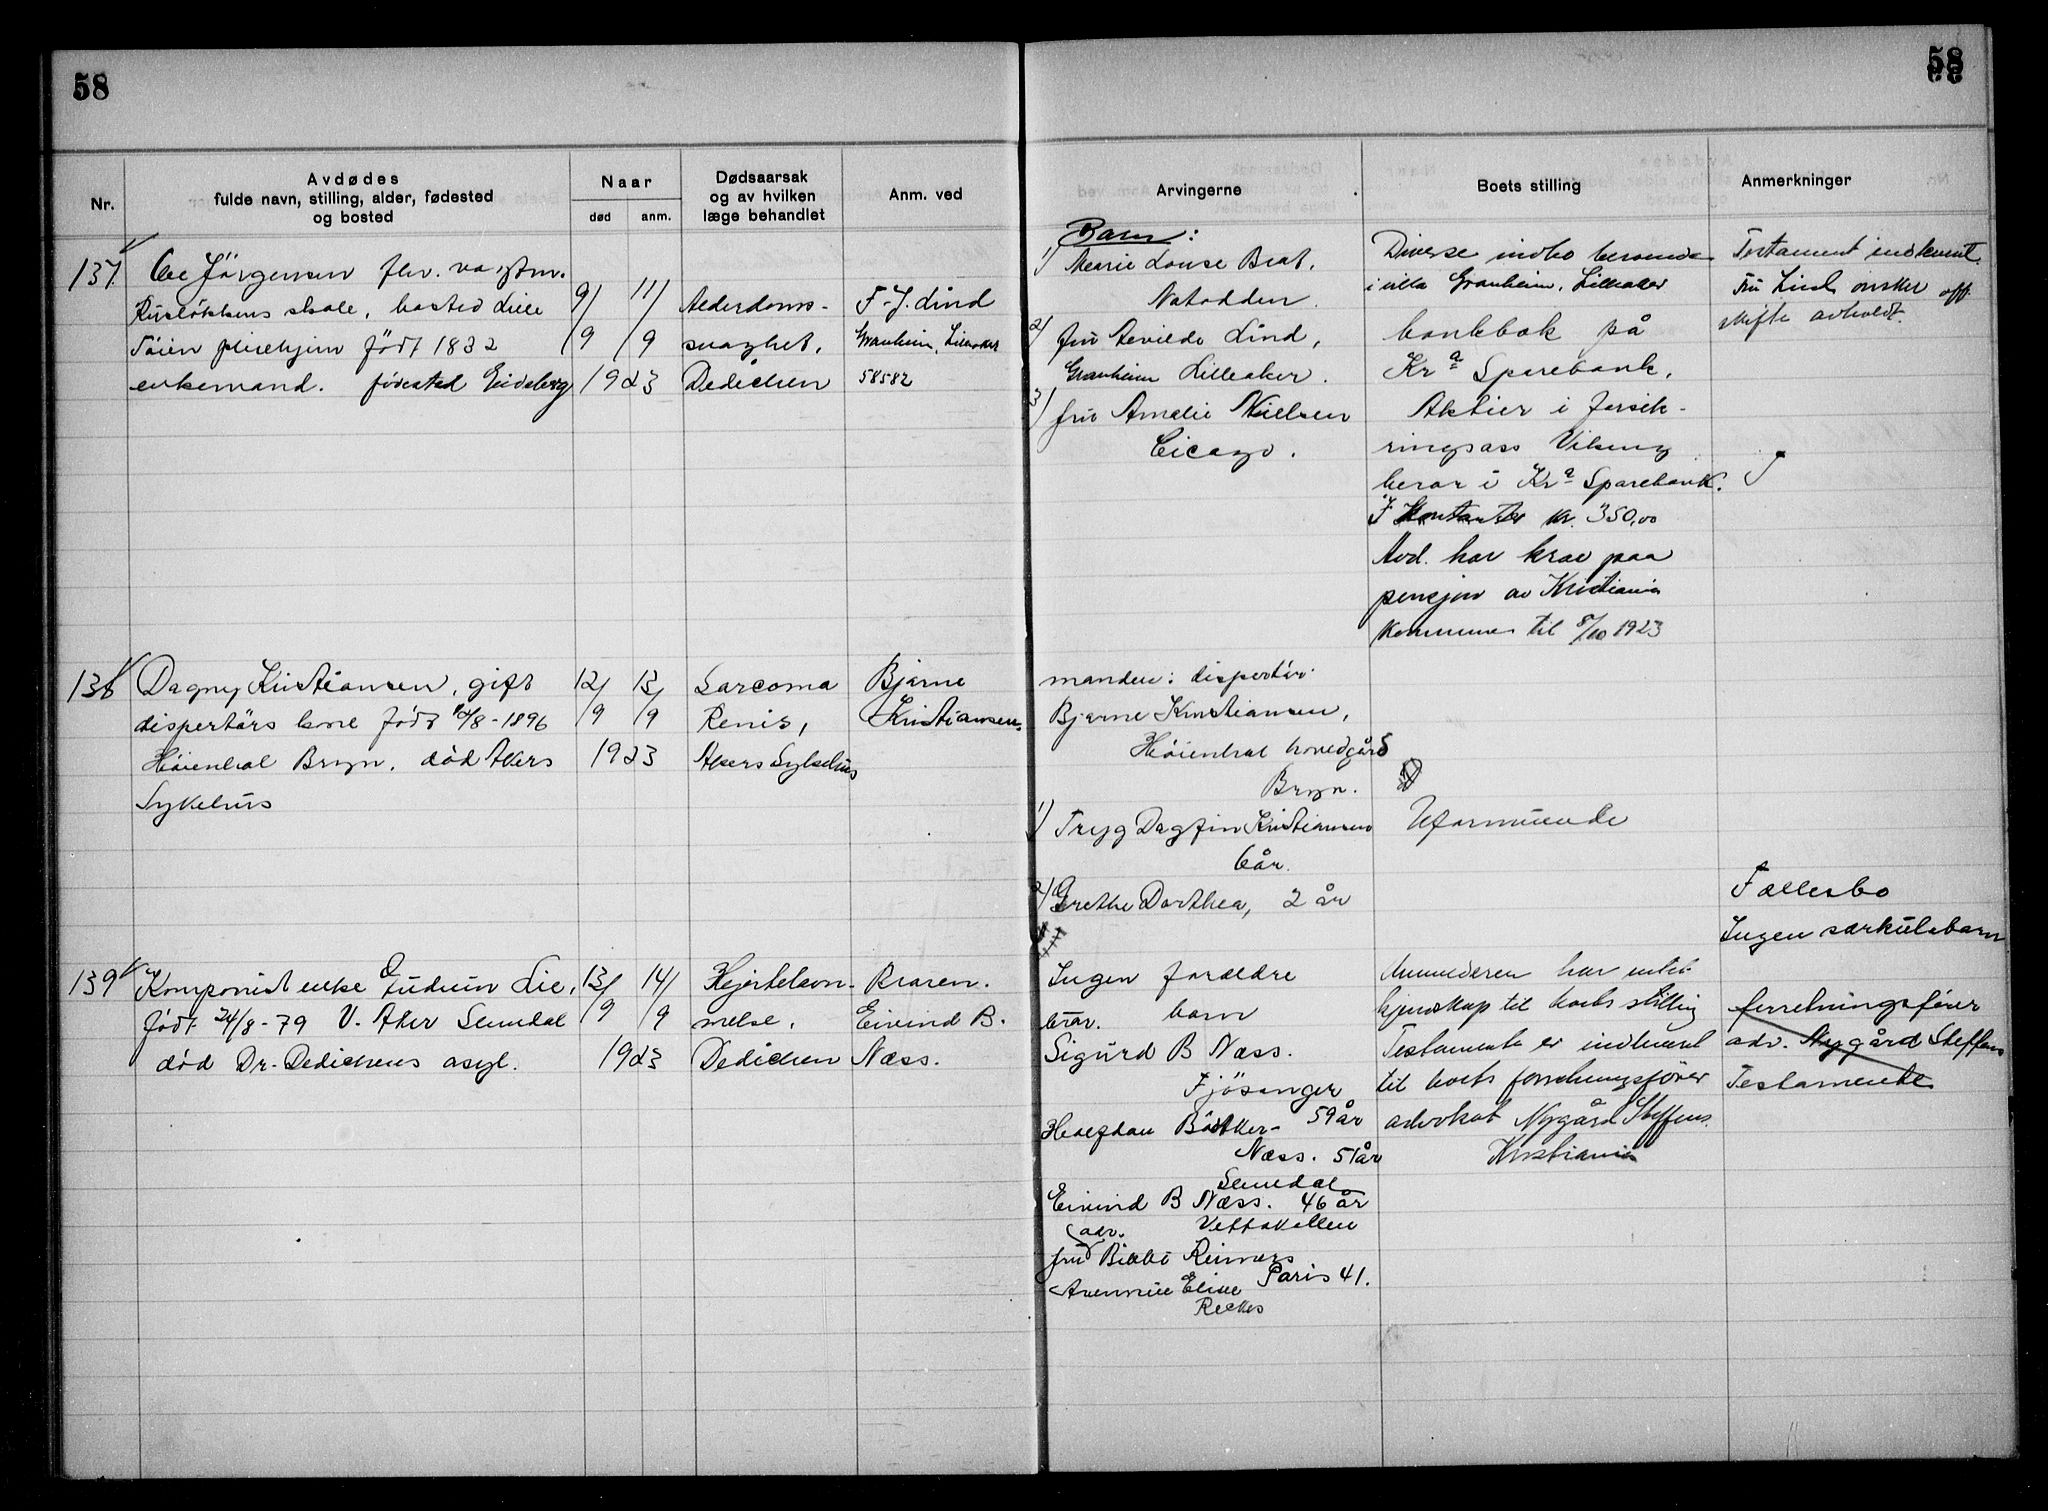 58
58
Nr.
Avdødes
fulde navn, stilling, alder, fødested
og bosted
Naar
død
anm.
Dødsaarsak
og av hvilken
læge behandlet
Anm. ved
Arvingerne
Boets stilling
Anmerkninger
137.
Ole Jörgensen fhv. vagtm.
Ruselökkens skole, bosted Lille
Töien pleiehjem födt 1832
enkemand. födested Eidsberg
9/9
11/9
1923
Alderdoms-
svaghet.
Dedichen
F. J. Lind
Granheim, Lilleaker
58582
Barn:
1) Marie Louise Brat,
Notodden.
2) fru Alvilde Lind,
Granheim Lilleaker.
3) fru Amalie Nielsen
Cicago.
Diverse indbo beroende
i villa Granheim, Lilleaker
bankbok på
Kr.a Sparebank.
Aktier i forsik-
ringsass Viking
beror i Kr.a Sparebank.
I Kontanter kr. 350,00
Avd. har krav paa
pensjon av Kristiania
Kommune til 8/10 1923
Testament indkomt.
Fru Lind önsker off.
skifte avholdt.
138
Dagny Kristiansen, gift
dispertörs kone födt /8-1896
Höienhal Bryn. död Akers
Sykehus
12/9
13/9
1923
Sarcoma
Renis,
Akers Sykehus
Bjarne
Kristiansen.
manden: dispertör
Bjarne Kristiansen,
Höienhal hovedgård
Bryn.
1) Tryg Dagfin Kristiansen
6 år.
2) Grethe Dorthea, 2 år
Uformuende
Fællesbo
Ingen særkulsbarn
139
Komponist enke Gudrun Lie,
födt 24/8-79 V. Aker Slemdal
död Dr. Dedichens asyl.
13/9
14/9
1923
Hjertelam-
melse.
Dedichen
Broren.
Eivind B.
Næss.
Ingen foreldre
barn
bror.
Sigurd B Næss.
Fjösanger
59 år
Halfdan Bödtker-
Næss. 51 år
Slemdal
Eivind B Næss. 46 år
adv. Vettakollen
fru Bibbi Reimers
Paris 41.
Avennue Elise
Reclus
Anmelderen har intet
kjenskap til boets stilling
Testamente er indlevert
til boets forretningsförer
advokat Nygård Steffens.
Kristiania
forretningsförer
adv. Nygård Steffens
Testamente